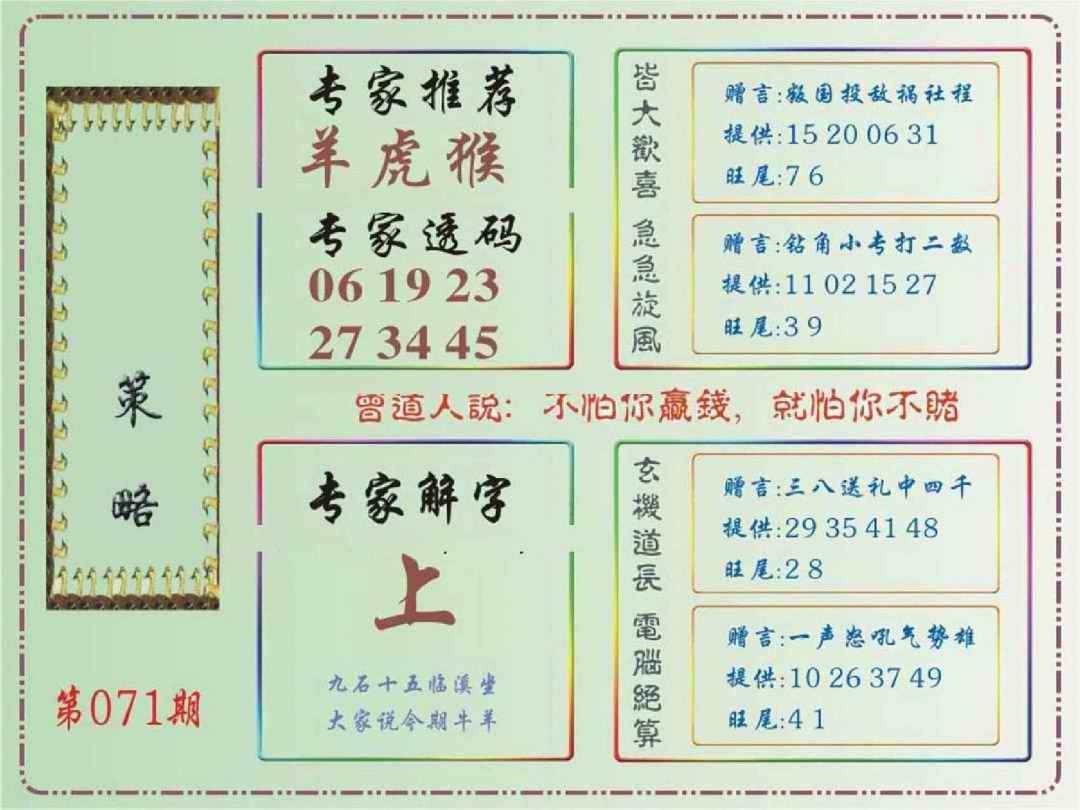 策略
第071期
专家推荐
羊虎猴
专家透码
06 19 23
27 34 45
皆大歡喜
赠言:叛国投敌祸社程
提供:15 20 06 31
旺尾:7 6
急急旋風
赠言:钻角小专打二数
提供:11 02 15 27
旺尾:3 9
曾道人説: 不怕你贏錢, 就怕你不賭
专家解字
上
九石十五临溪坐
大家说今期牛羊
玄機道長
赠言:三八送礼中四千
提供:29 35 41 48
旺尾:2 8
電腦絕算
赠言:一声怒吼气势雄
提供:10 26 37 49
旺尾:4 1